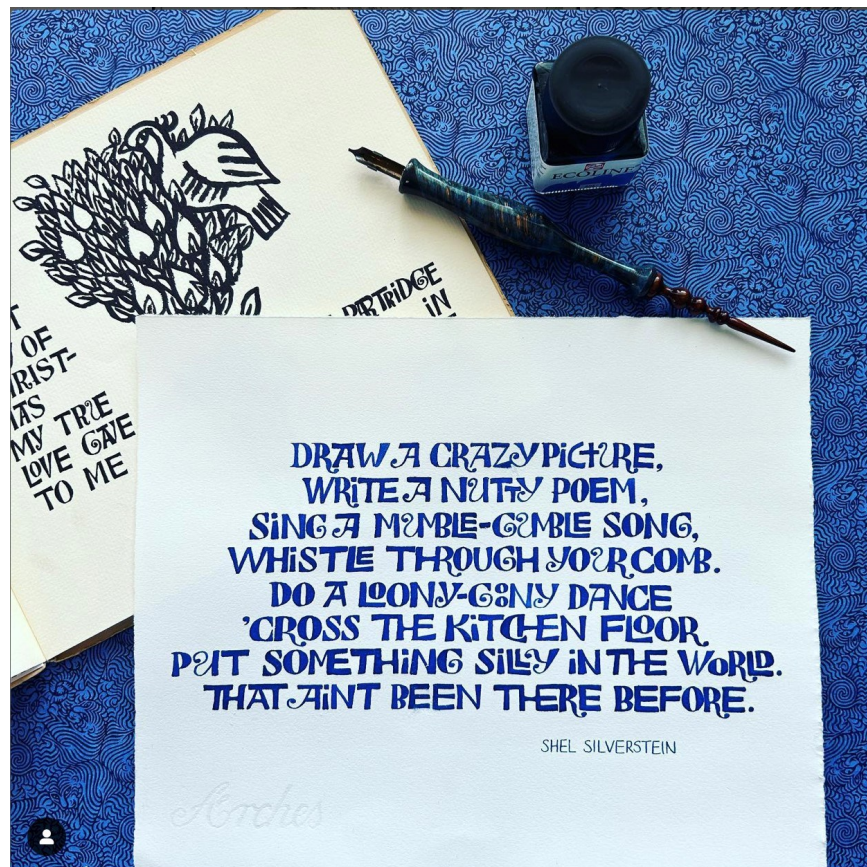 T
OF
RIST-
AS
MY TRUE
LOVE GAVE
TO ME
PARTRIDGE
iN
ECOLINE
DRAW A CRAZY PiCTURE,
WRiTE A NUTTY POEM,
SiNG A MUMBLE-GUMBLE SONG,
WHiSTLE THROUGH YOUR COMB.
DO A LOONY-GOONY DANCE
'CROSS THE KiTCHEN FLOOR
PUT SOMETHiNG SiLLY iN THE WORLD.
THAT AiNT BEEN THERE BEFORE.
SHEL SILVERSTEIN
Arches